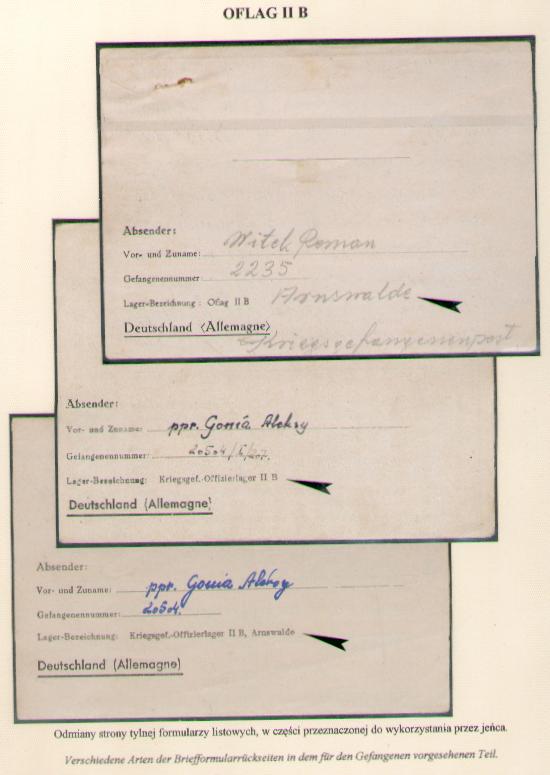 OFLAG II B
Absender:
Vor- und Zuname: Witek Roman
Gefangenennummer: 2235
Lager-Bezeichnung: Oflag II B Arnswalde
Deutschland (Allemagne)
Kriegsgefangenenpost
Absender:
Vor- und Zuname: ppr. Gonia
Gefangenennummer: 20504
Lager-Bezeichnung: Kriegsgef.-Offizierlager II B
Deutschland (Allemagne)
Absender:
Vor- und Zuname: ppr. Gonia
Gefangenennummer: 20504.
Lager-Bezeichnung: Kriegsgef.-Offizierlager II B, Arnswalde
Deutschland (Allemagne)
Odmiany strony tylnej formularzy listowych, w części przeznaczonej do wykorzystania przez jeńca.
Verschiedene Arten der Briefformularrückseiten in dem für den Gefangenen vorgesehenen Teil.